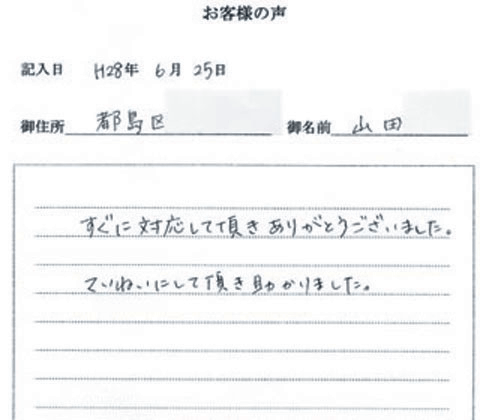 お客様の声
記入日 H28年 6月 25日
御住所 都島区 御名前 山田
すぐに対応して頂きありがとうございました。
ていねいにして頂き助かりました。